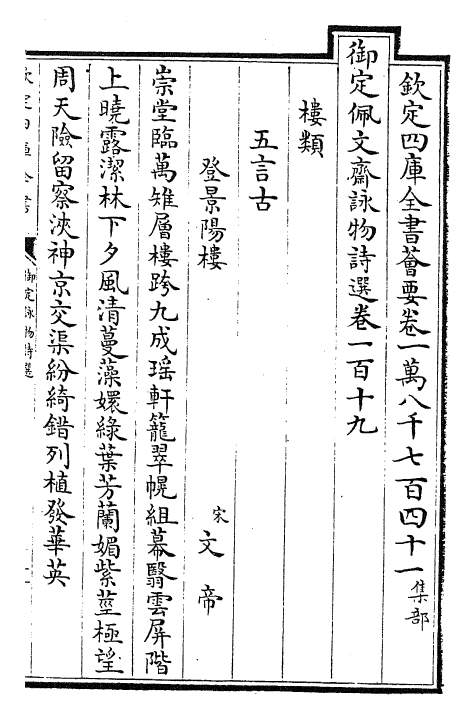 欽定四庫全書薈要卷一萬八千七百四十一 集部
御定佩文齋詠物詩選卷一百十九
樓類
五言古
登景陽樓 宋 文帝
崇堂臨萬雉層樓跨九成瑶軒籠翠幌組幕翳雲屏階
上曉露潔林下夕風清蔓藻嬛綠葉芳蘭媚紫莖極望
周天險留察浹神京交渠紛綺錯列植發華英
御定詠物詩選